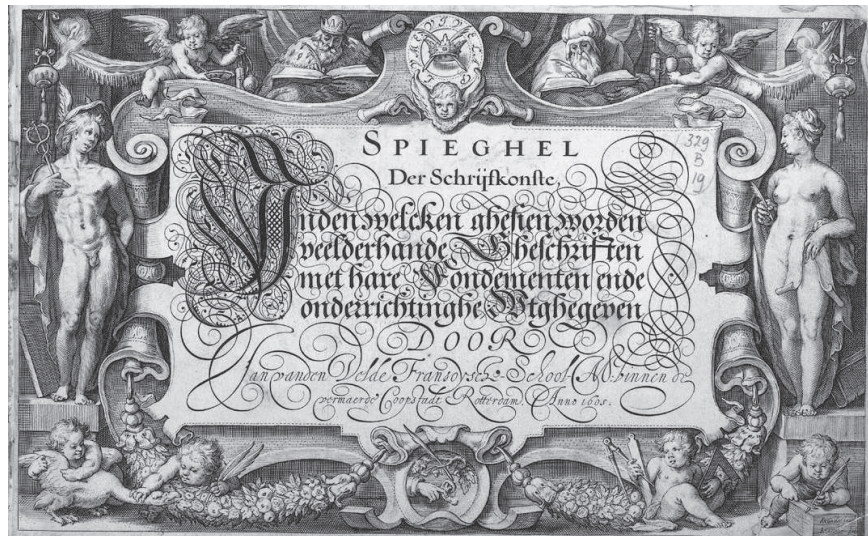 SPIEGHEL
Der Schrijfkonste,
Inden welcken ghesien worden
veelderhande Gheschriften
met hare Fondementen ende
onderrichtinghe Wtghegeven
DOOR
Jan vanden Velde Fransoysche-School-M. binnen de
vermaerde Coopstadt Rotterdam. Anno 1605.
1329
B
19